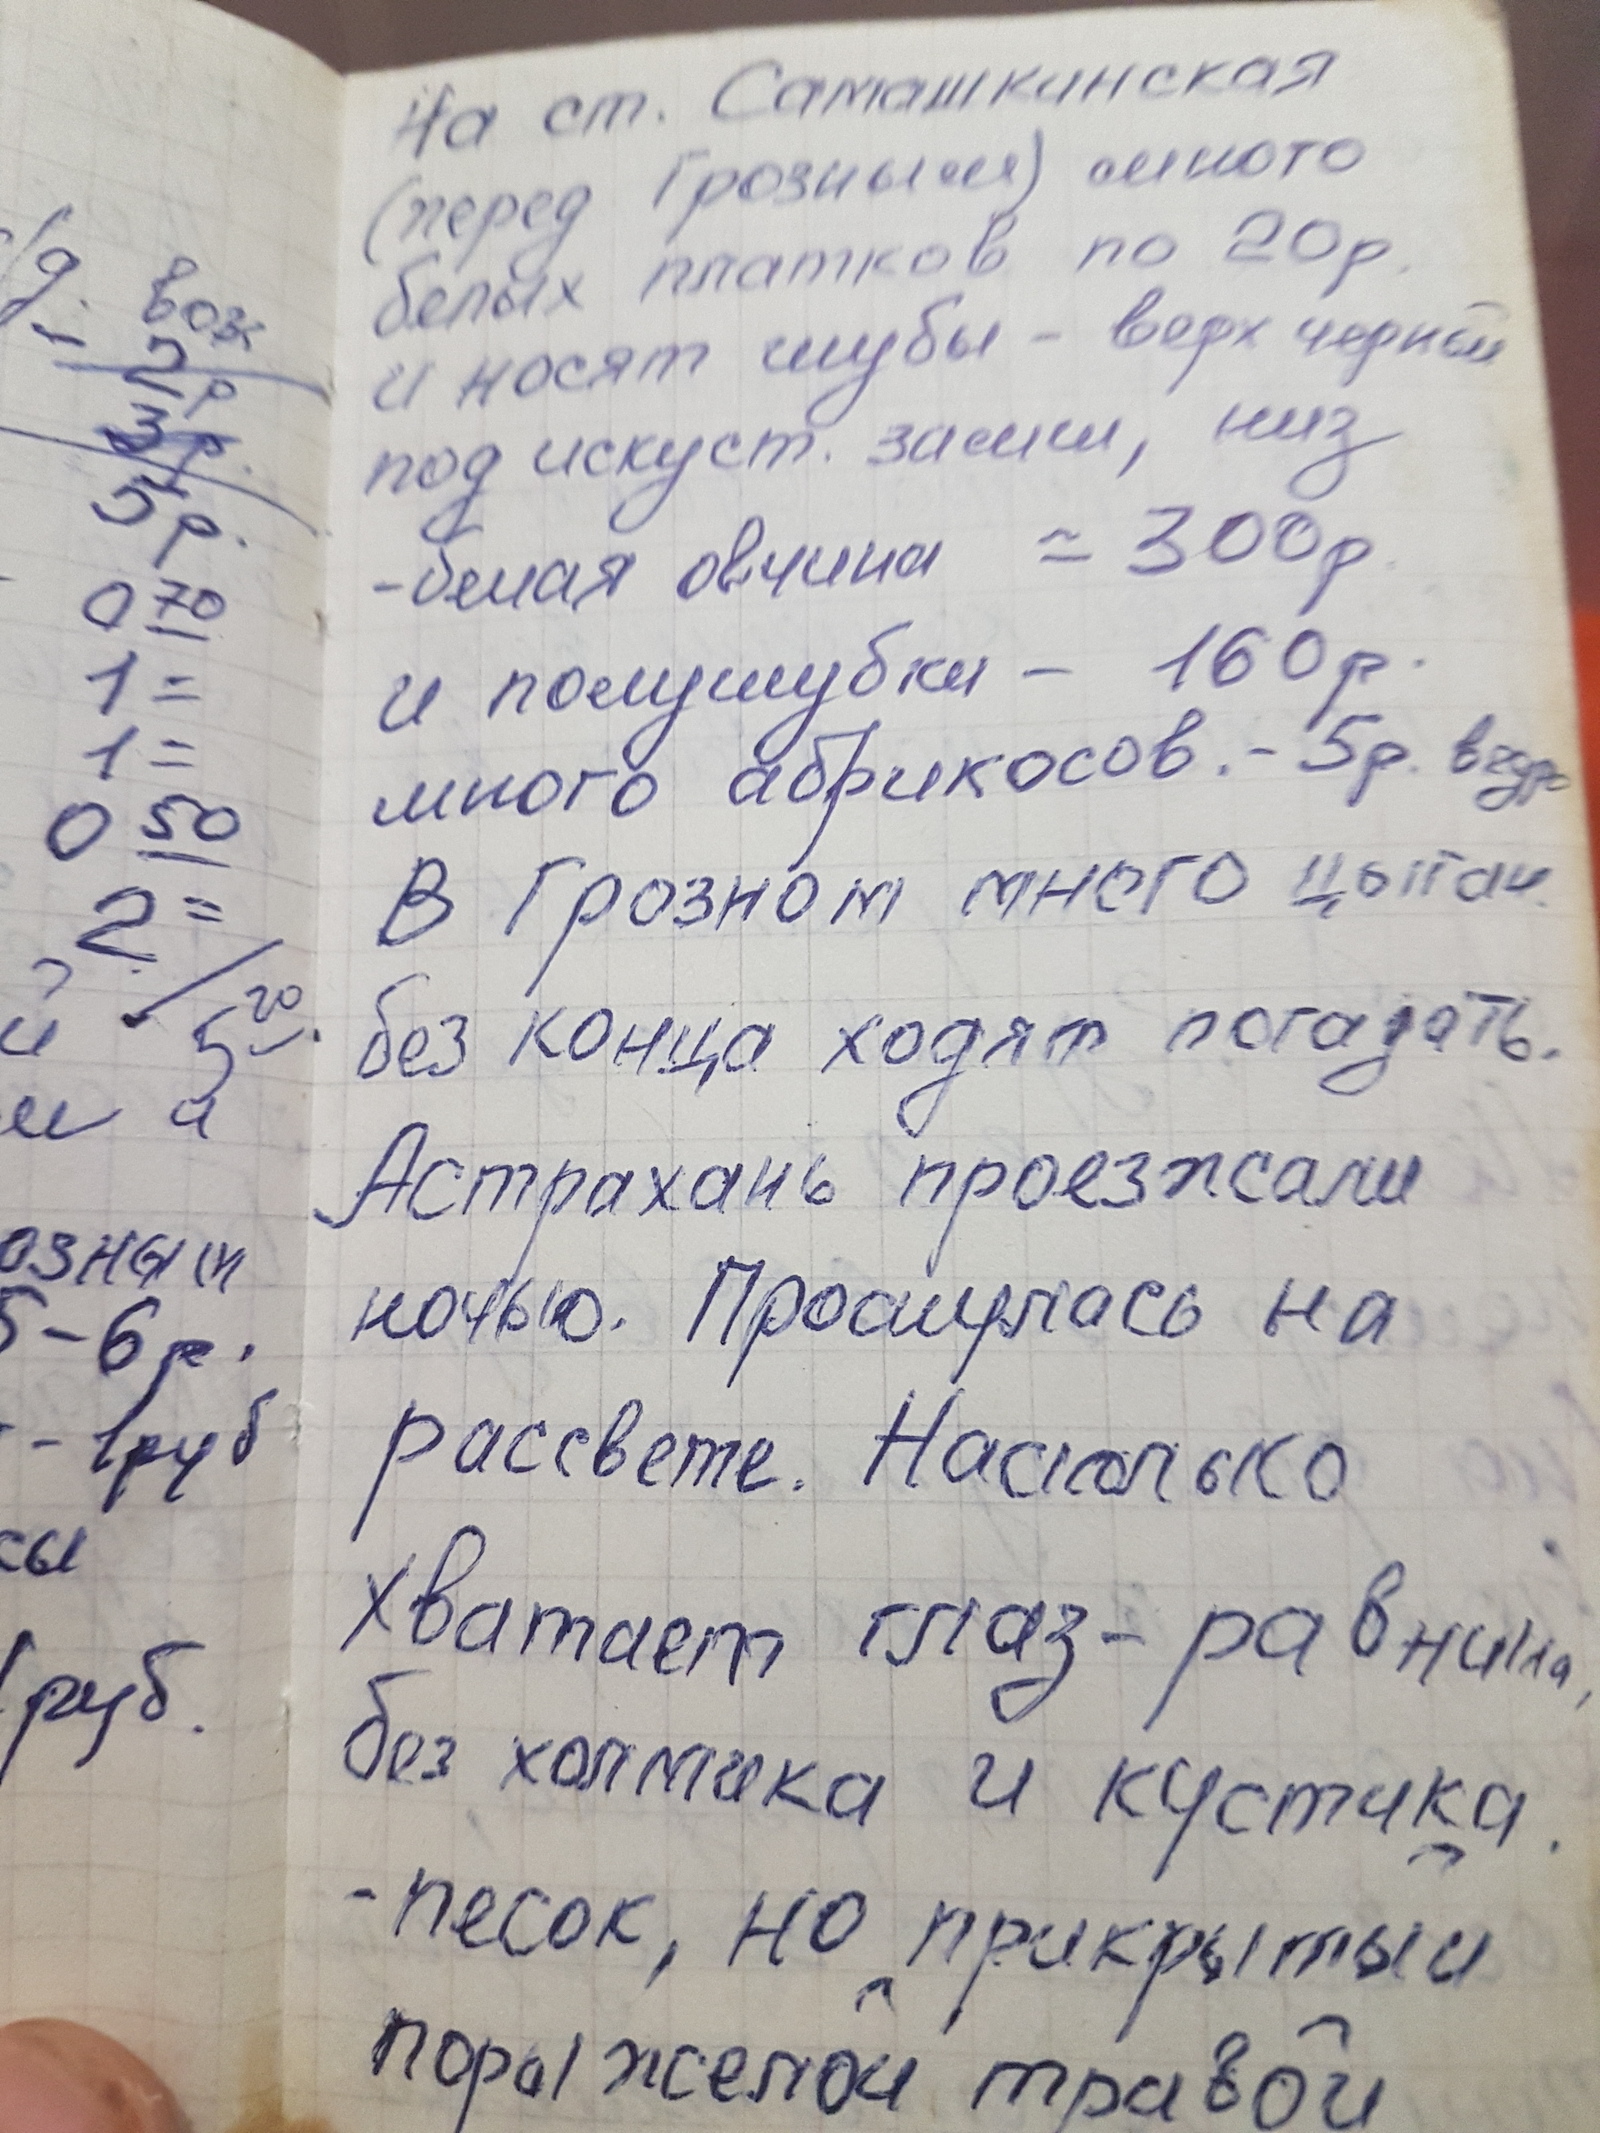 с/д. вож
- 2р
3р.
5р.
0 70
1 =
1 =
0 50
2 =
5 20
и
и а
озным
5-6р.
- 1руб
сы
1руб.
На ст. Самашкинская
(перед Грозным) много
белых платков по 20р.
и носят шубы - верх черный
под искуст. замш, низ
-белая овчина ≈ 300р.
и полушубки - 160р.
много абрикосов. - 5р. ведро
В Грозном много цыган.
без конца ходят погадать.
Астрахань проезжали
ночью. Проснулась на
рассвете. Насколько
хватает глаз - равнина,
без холмика и кустика.
-песок, но прикрытый
порыжелой травой